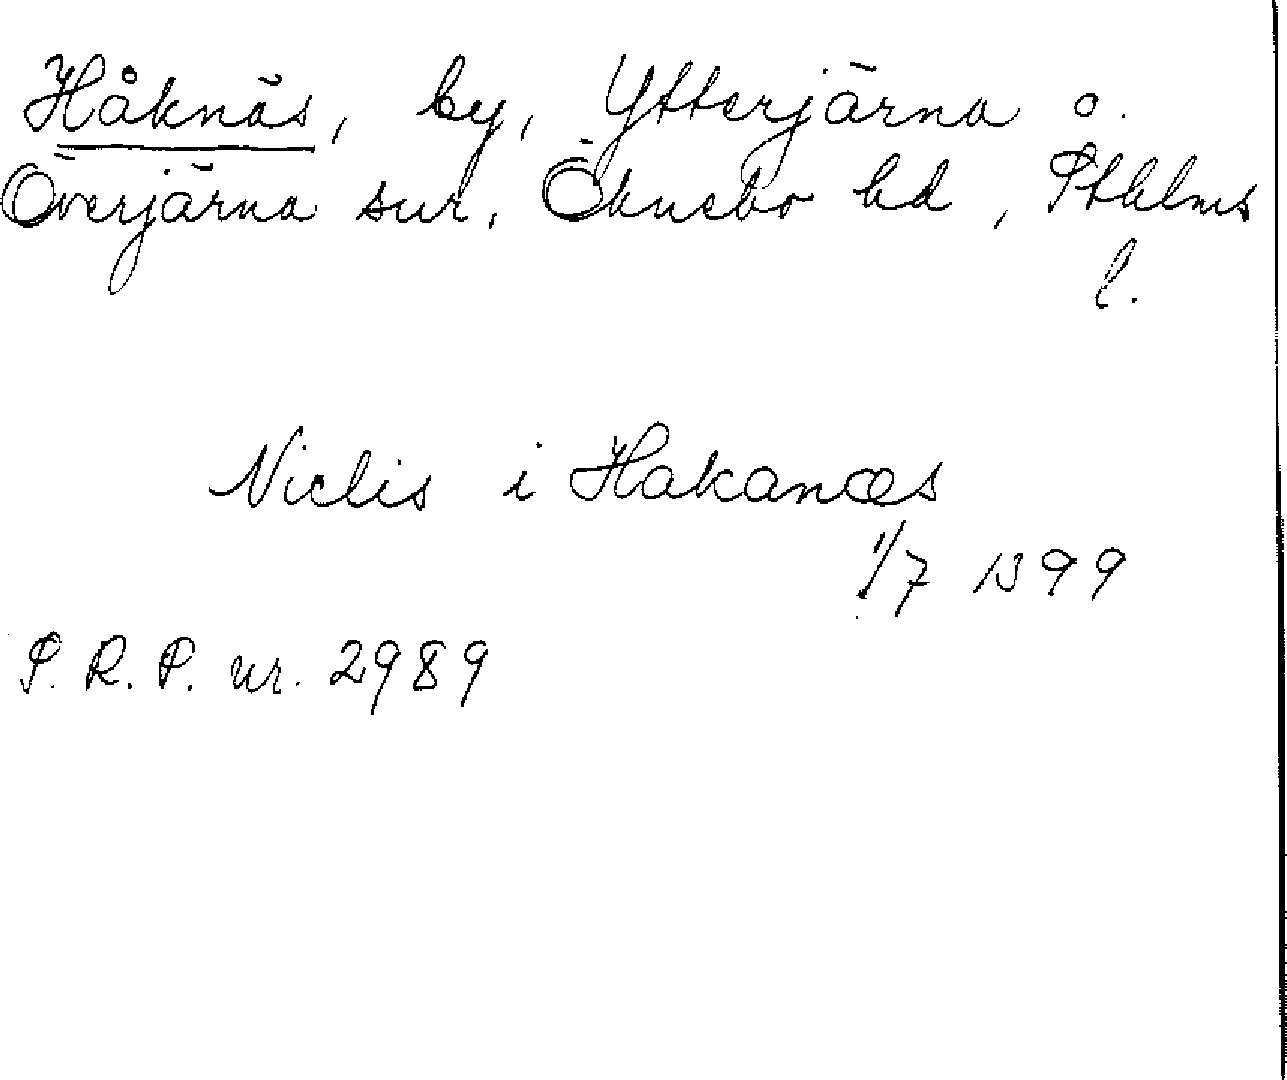 Håknäs, by, Ytterjärna o.
Överjärna snr, Öknebo hd, Sthlms
l.
Niclis i Hakanæs
1/7 1399
S. R. P. nr. 2989